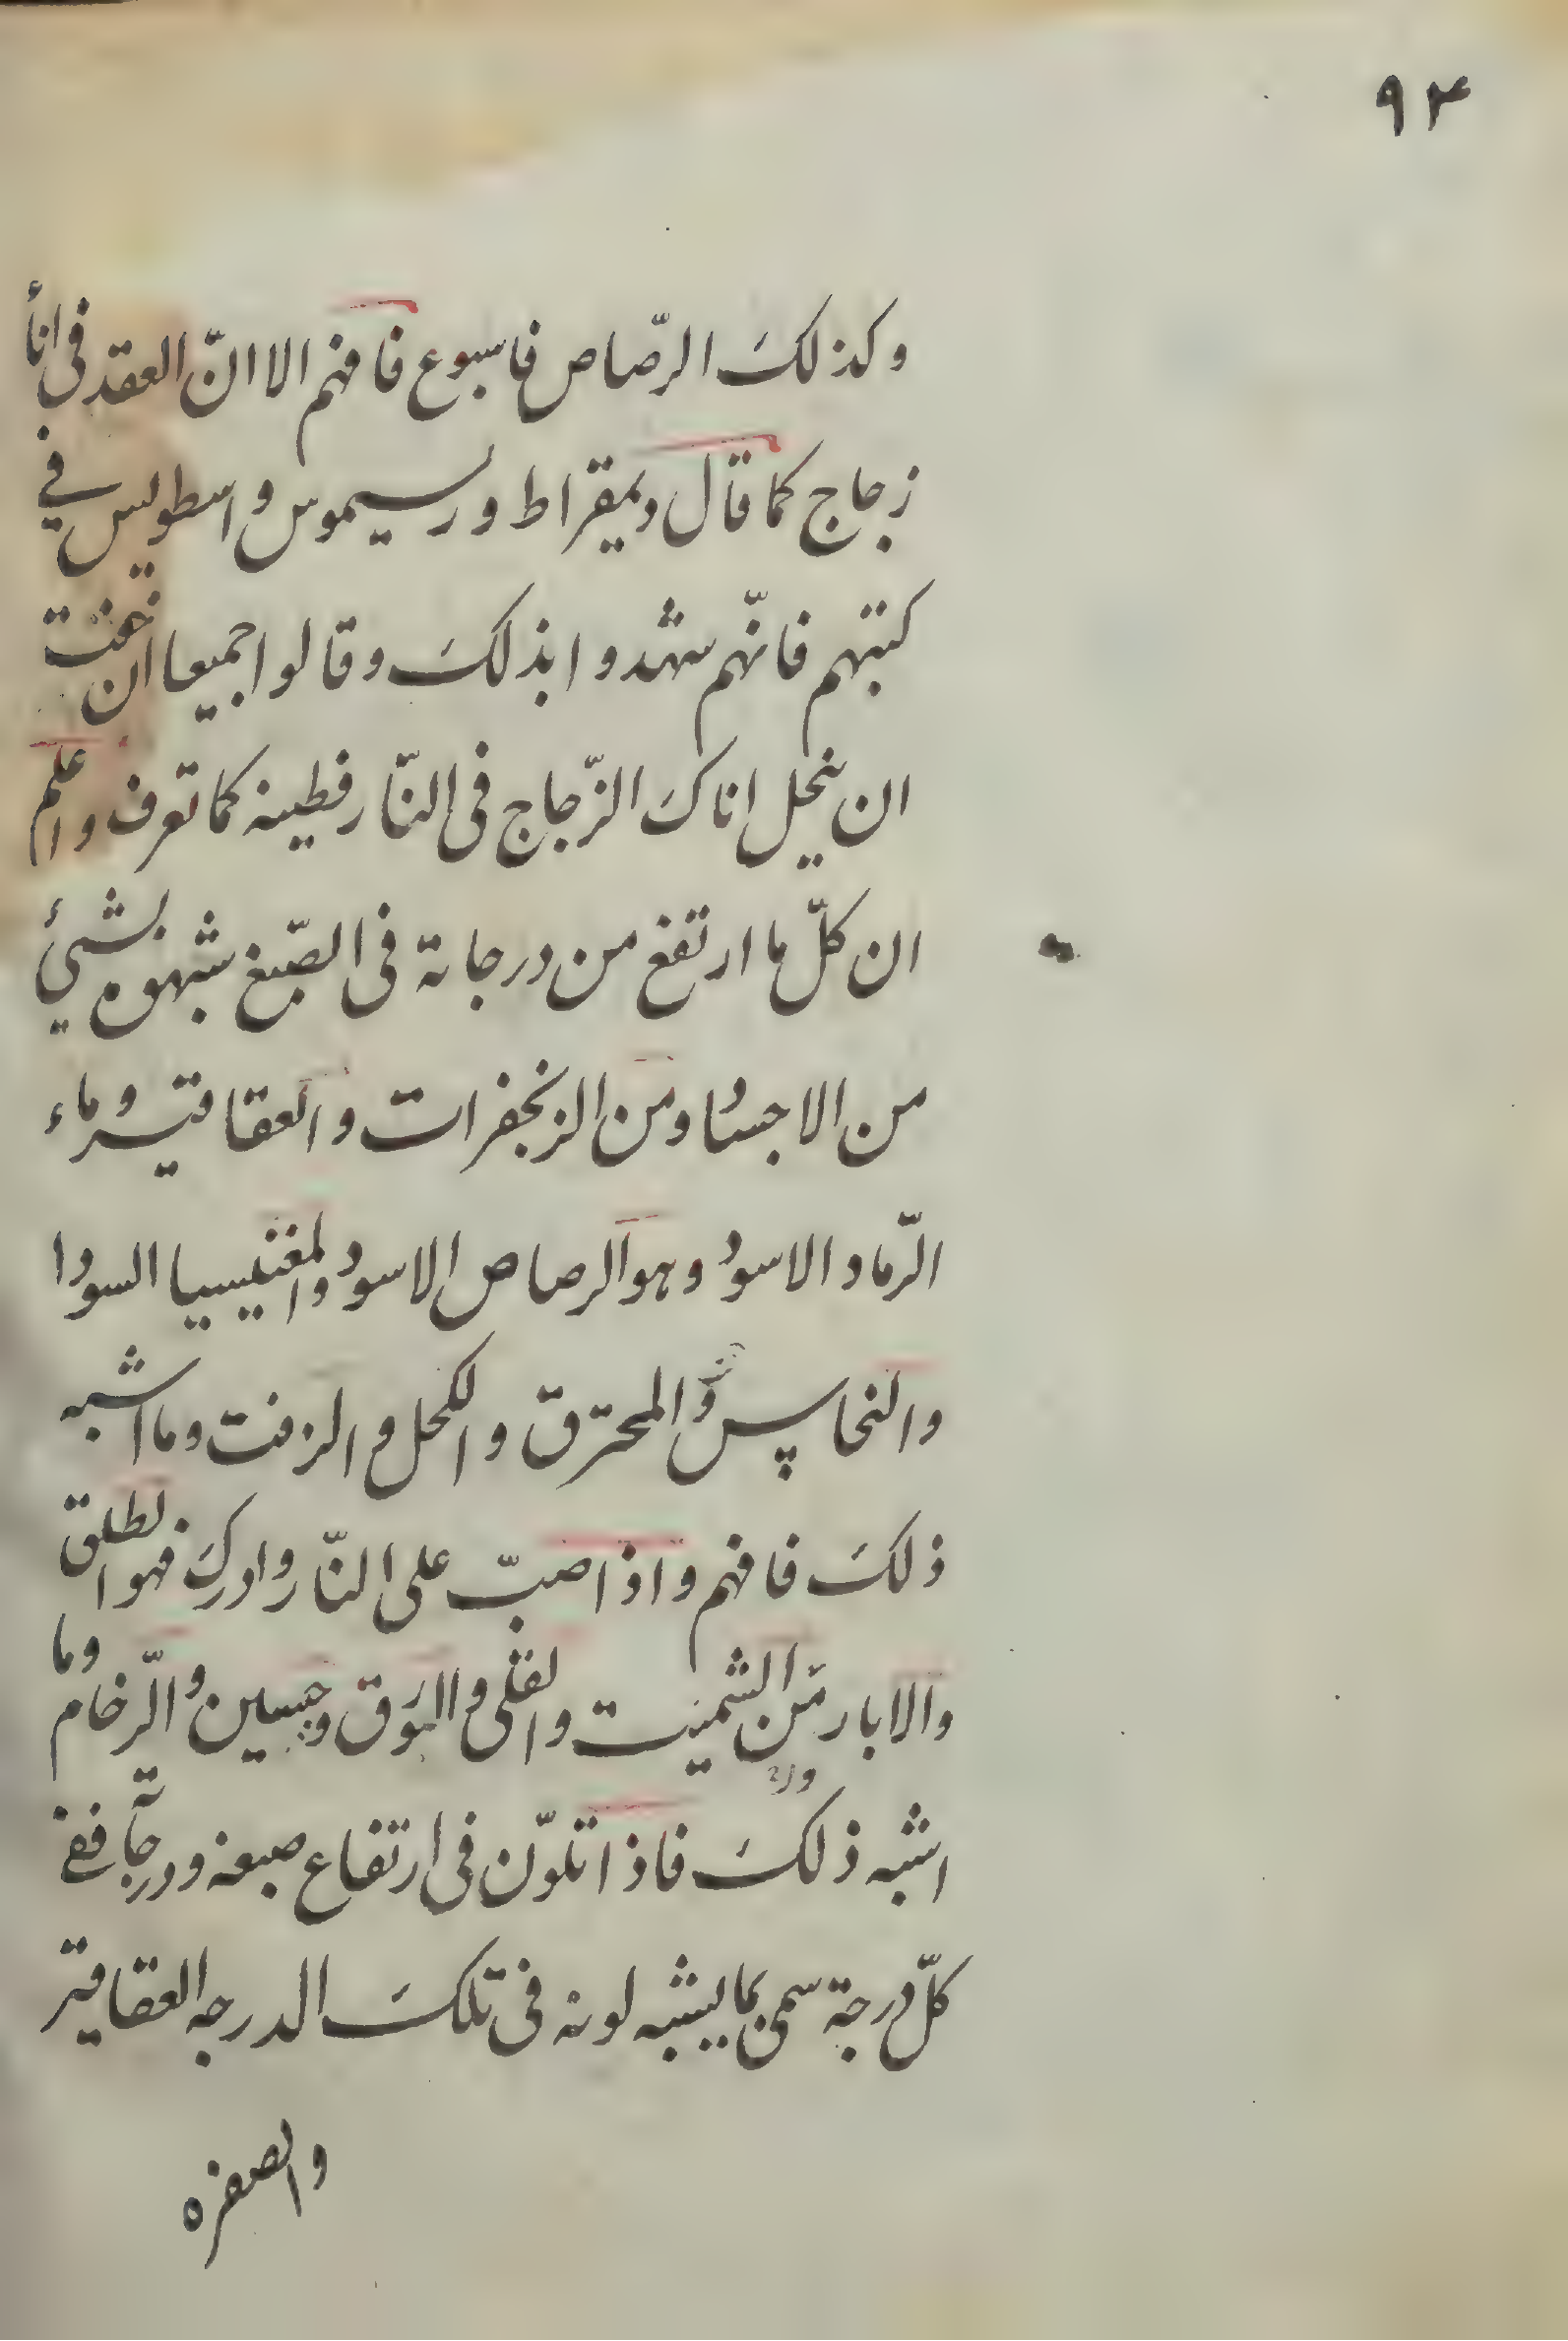 ٩٢
وكذلك الرّصاص فاسبوع فافهم الا انّ العقد فى انأ
زجاج كما قال ديمقراط ورسيموس واسطوليس في
كتبهم فانّهم شهدوا بذلك وقالوا جميعا ان خفت
ان ينحل اناك الزّجاج فى النّار فطينه كما تعرف واعلم
ان كلّ ما ارتفع من درجاته فى الصّبغ شبهوه بشيئ
من الاجساد ومن الزنجفرات والعقاقير وماء
الرّماد الاسود وهو الرصاص الاسود والمغنيسيا السودا
والنحاس والمحترق والكحل والزفت وما اشبه
ذلك فافهم واذا صبّ على النّار وادرك فهو الطلق
والابار من الشميت والقلى والبورق وجبسين والرّخام وما
اشبه ذلك فاذا تلوّن فى ارتفاع صبغه ودرجاته ففى
كلّ درجة سمى بما يشبه لونه فى تلك الدرجه العقاقير
والصفره